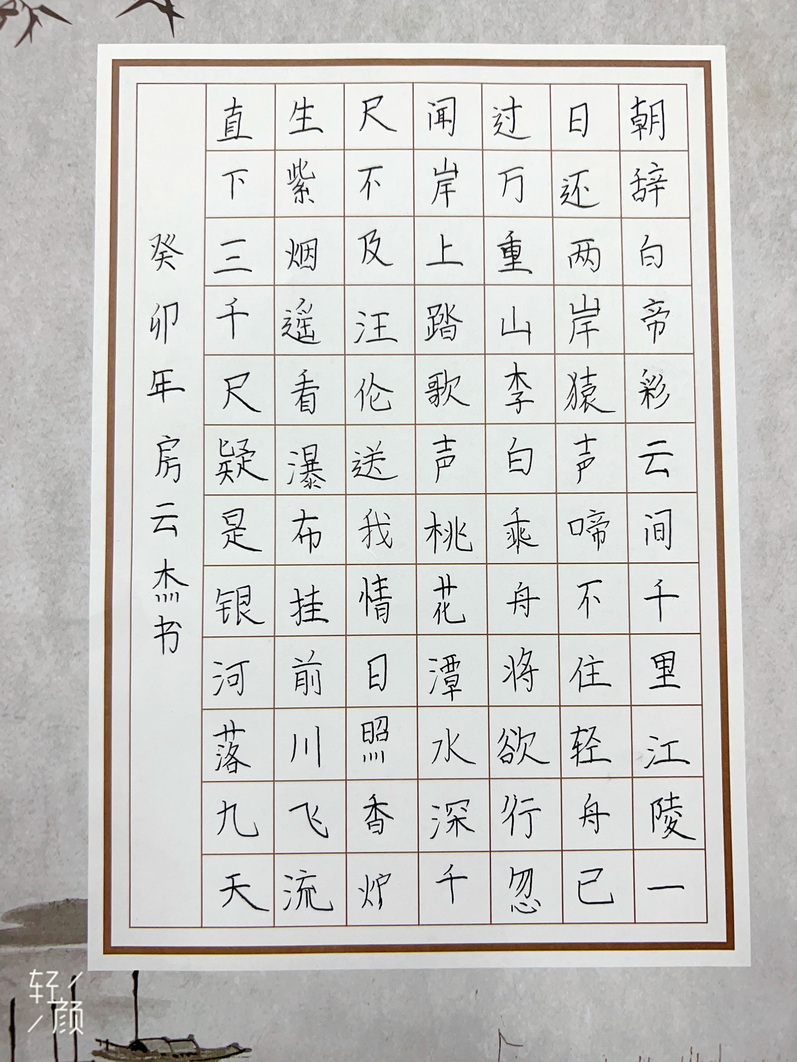 朝辞白帝彩云间千里江陵一
日还两岸猿声啼不住轻舟已
过万重山李白乘舟将欲行忽
闻岸上踏歌声桃花潭水深千
尺不及汪伦送我情日照香炉
生紫烟遥看瀑布挂前川飞流
直下三千尺疑是银河落九天
癸卯年房云杰书
轻颜